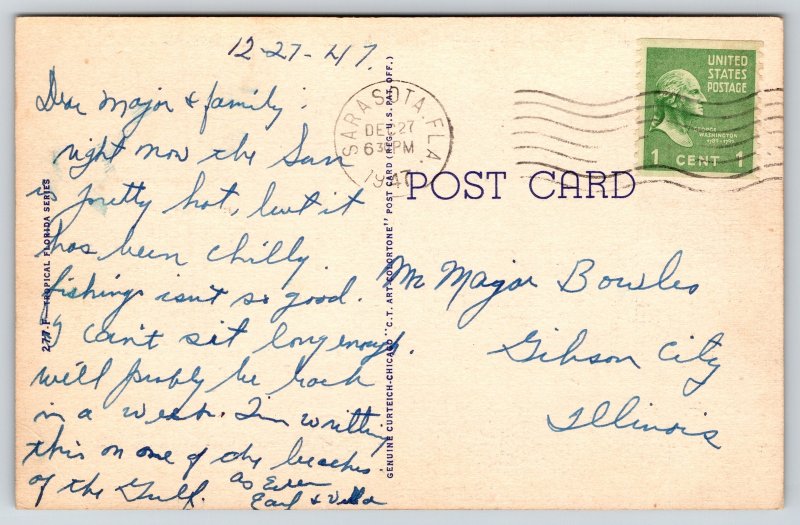 12-27-47
Dear Major & family:
right now the Sun
is pretty hot, but it
has been chilly
fishing isn't so good.
I can't sit long enough.
will probly be back
in a week. I'm writting
this on one of the beaches
of the Gulf.
as Ever
Earl & Villa
277-F—TROPICAL FLORIDA SERIES
GENUINE CURTEICH-CHICAGO "C.T. ART-COLORTONE" POST CARD (REG. U.S. PAT. OFF.)
SARASOTA, FLA.
DEC 27
6 PM
1947
UNITED
STATES
POSTAGE
GEORGE
WASHINGTON
1789-1797
1 CENT 1
POST CARD
Mr Major Bowles
Gibson City
Illinois